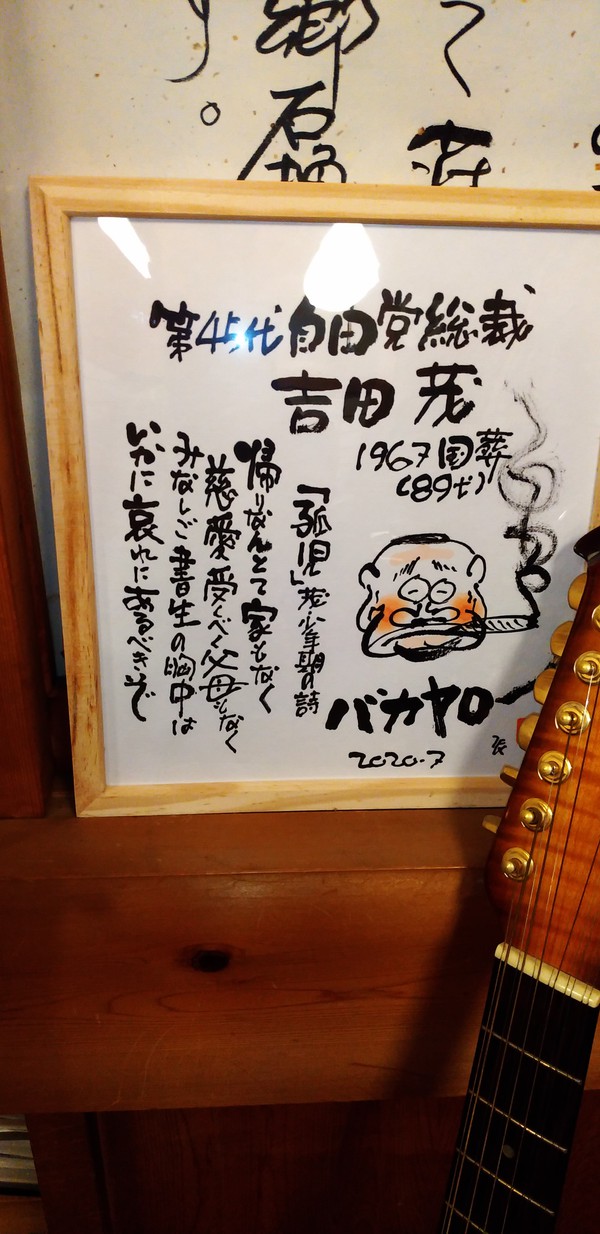 て
郷石
す。
第45代自由党総裁
吉田 茂
1967国葬
(89才)
「孤児」茂少年期の詩
帰りなんとて家もなく
慈愛受くべく父母もなく
みなしご書生の胸中は
いかに哀れにあるべきぞ
バカヤロー
2020.7